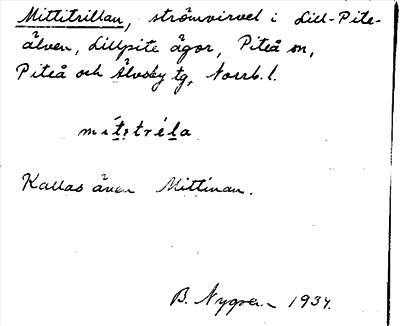 Mittitrillan, strömvirvel i Lill-Pite-
älven, Lillpite ägor, Piteå sn,
Piteå och Älvsby tg, Norrb. l.
mítitréla
Kallas även Mittinan.
B. Nygren 1934.